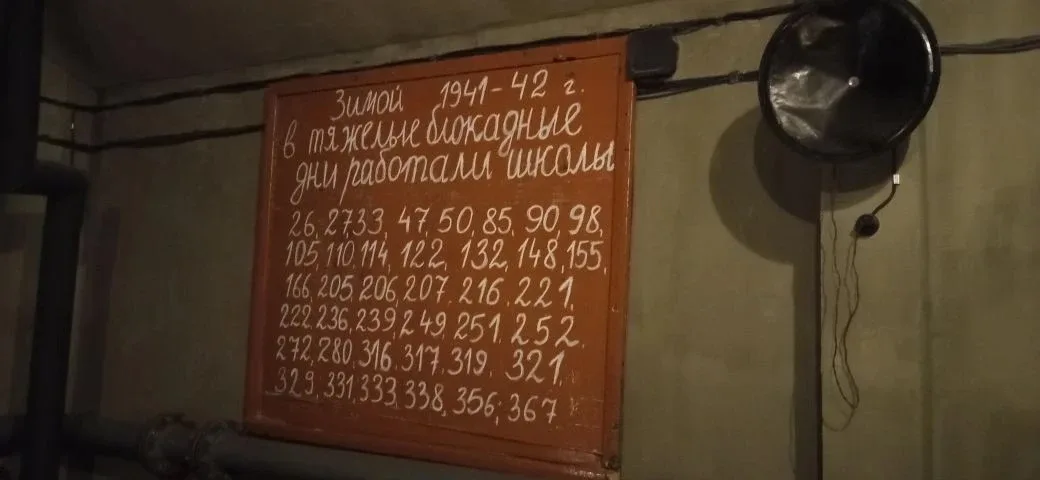 Зимой 1941-42 г.
в тяжелые блокадные
дни работали школы
26, 27 33, 47, 50, 85, 90, 98,
105, 110, 114, 122, 132, 148, 155,
166, 205, 206, 207, 216, 221,
222, 236, 239, 249, 251, 252.
272, 280, 316, 317, 319, 321,
329, 331, 333, 338, 356, 367